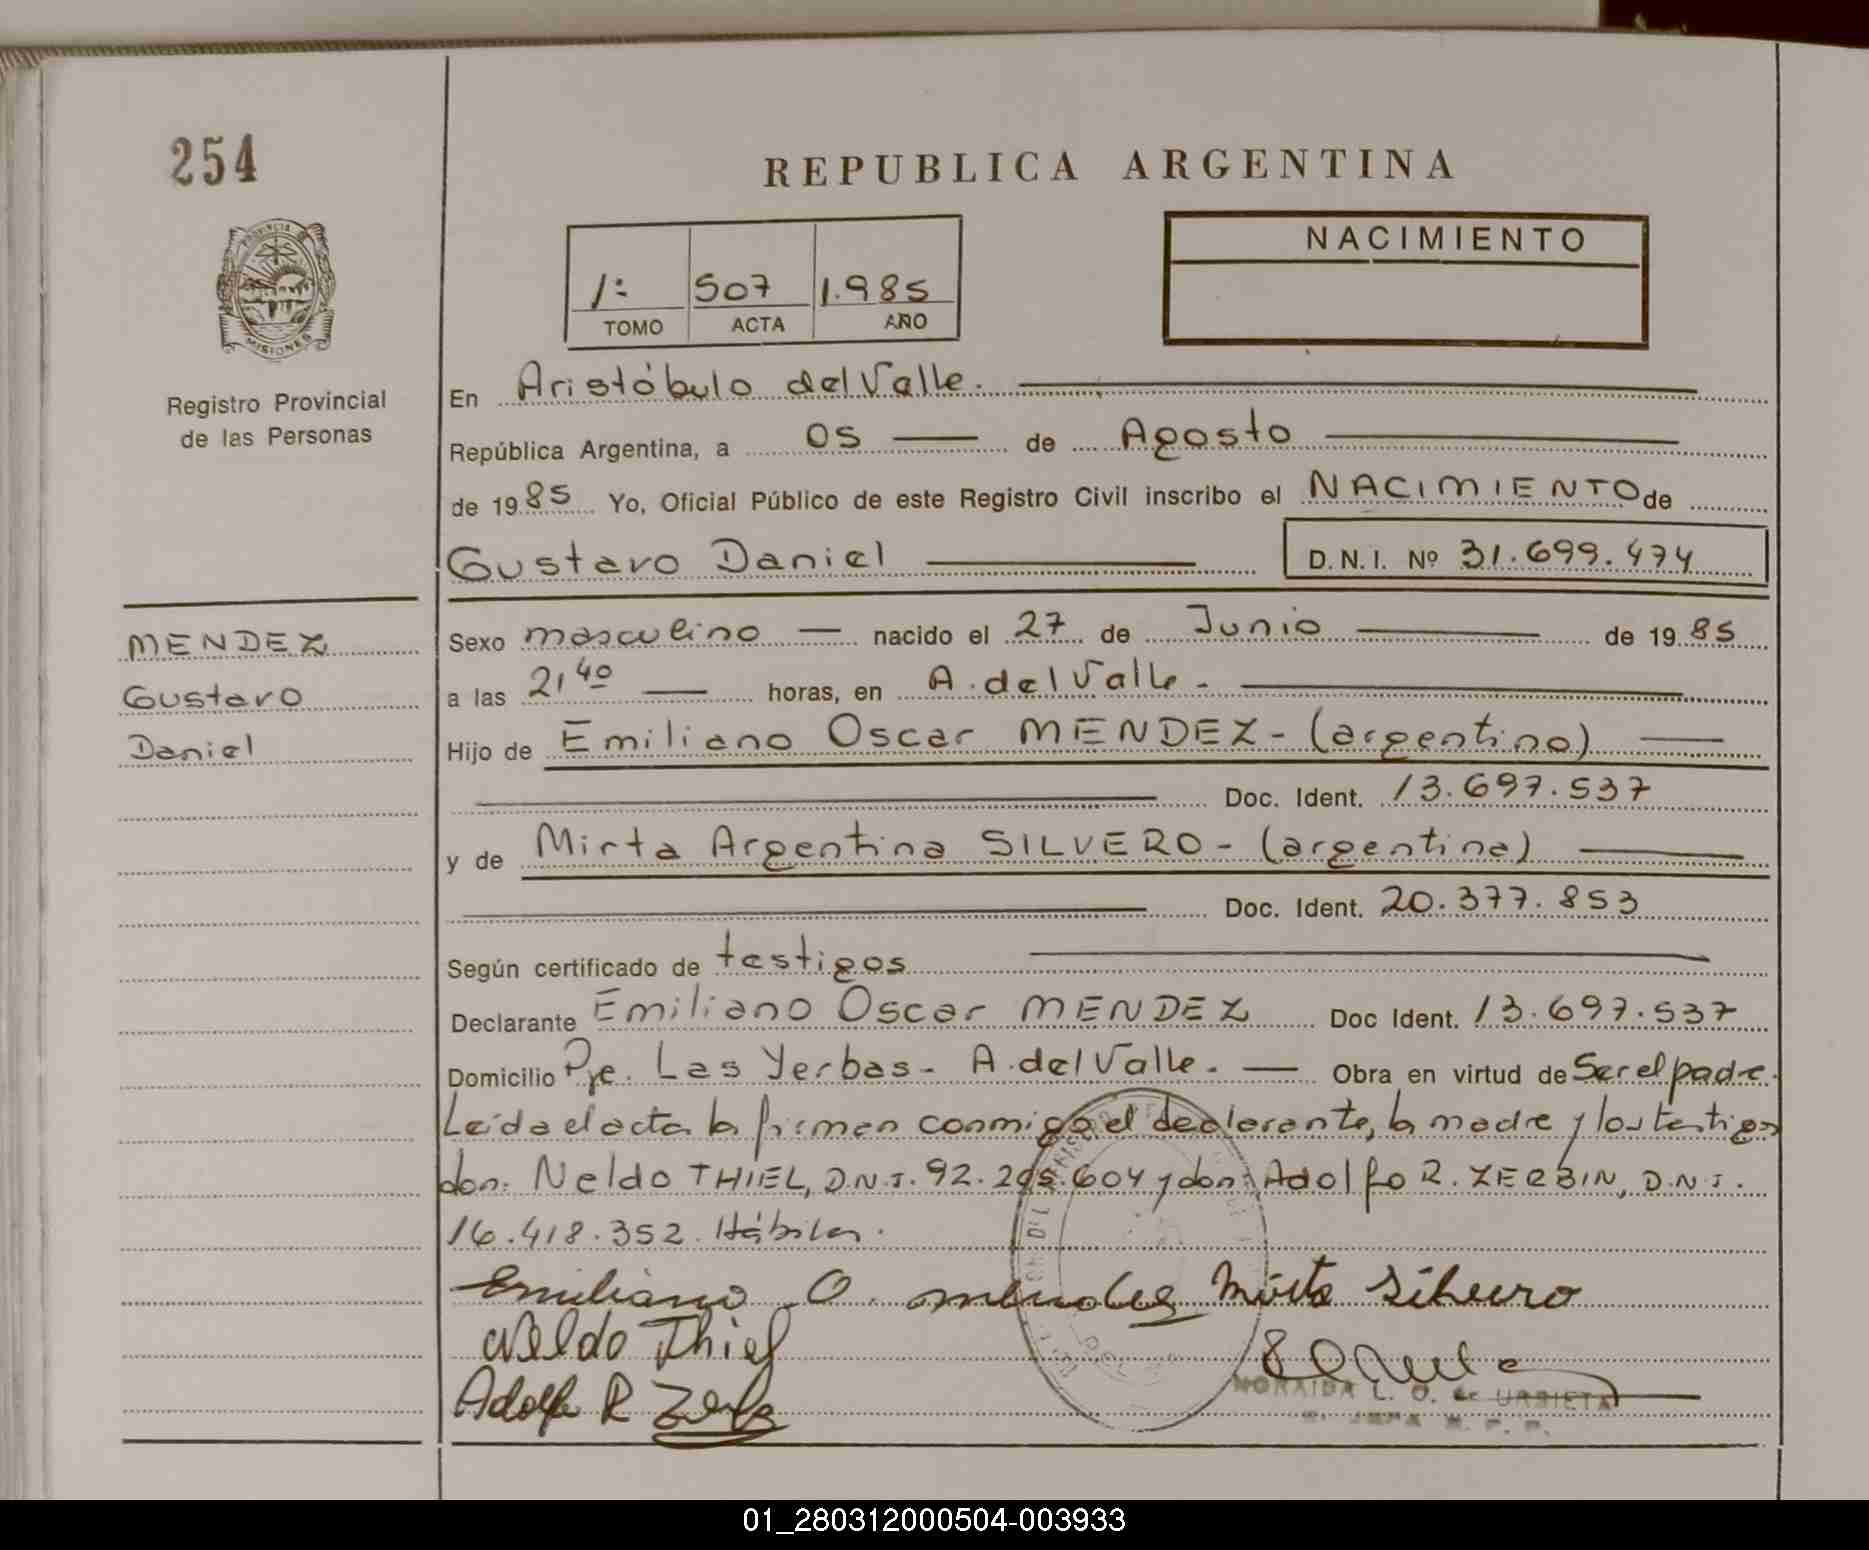 254
REPUBLICA ARGENTINA
PROVINCIA DE
MISIONES
1: 507 1.985
TOMO ACTA AÑO
NACIMIENTO
Registro Provincial
de las Personas
En Aristóbulo del Valle.
República Argentina, a 05 de Agosto
de 1985 Yo, Oficial Público de este Registro Civil inscribo el NACIMIENTO de
Gustavo Daniel D.N.I. Nº 31.699.474
MENDEZ
Gustavo
Daniel
Sexo masculino nacido el 27 de Junio de 1985
a las 21,40 horas, en A. del Valle.
Hijo de Emiliano Oscar MENDEZ - (argentino)
Doc. Ident. 13.697.537
y de Mirta Argentina SILVERO - (argentina)
Doc. Ident. 20.377.853
Según certificado de testigos
Declarante Emiliano Oscar MENDEZ Doc Ident. 13.697.537
Domicilio Pje. Las Yerbas - A. del Valle. Obra en virtud de Ser el padre.
Leída el acta la firman conmigo el declarante, la madre y los testigos
don: Neldo THIEL, D.N.I. 92.295.604 y don: Adolfo R. ZERBIN, D.N.I.
16.418.352. Hábiles.
Emiliano O. mendez Mirta Silvero
Neldo Thiel
Adolfo R
NORAIDA L. O. de URBIETA
01_280312000504-003933